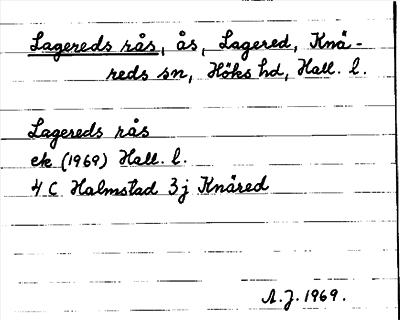 Lagereds rås, ås, Lagered, Knä-
reds sn, Höks hd, Hall. l.
Lagereds rås
ek (1969) Hall. l.
4 C Halmstad 3j Knäred
A.J. 1969.